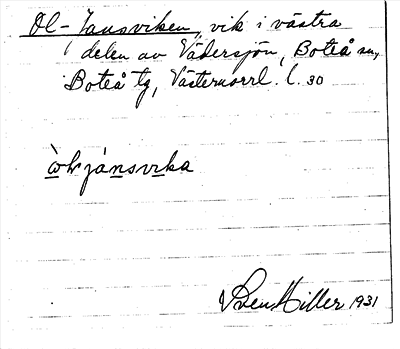 Ol-Jansviken, vik i västra
delen av Vädersjön, Boteå sn,
Boteå tg, Västernorrl. l. 30
jánsvika
Sven Hiller 1931